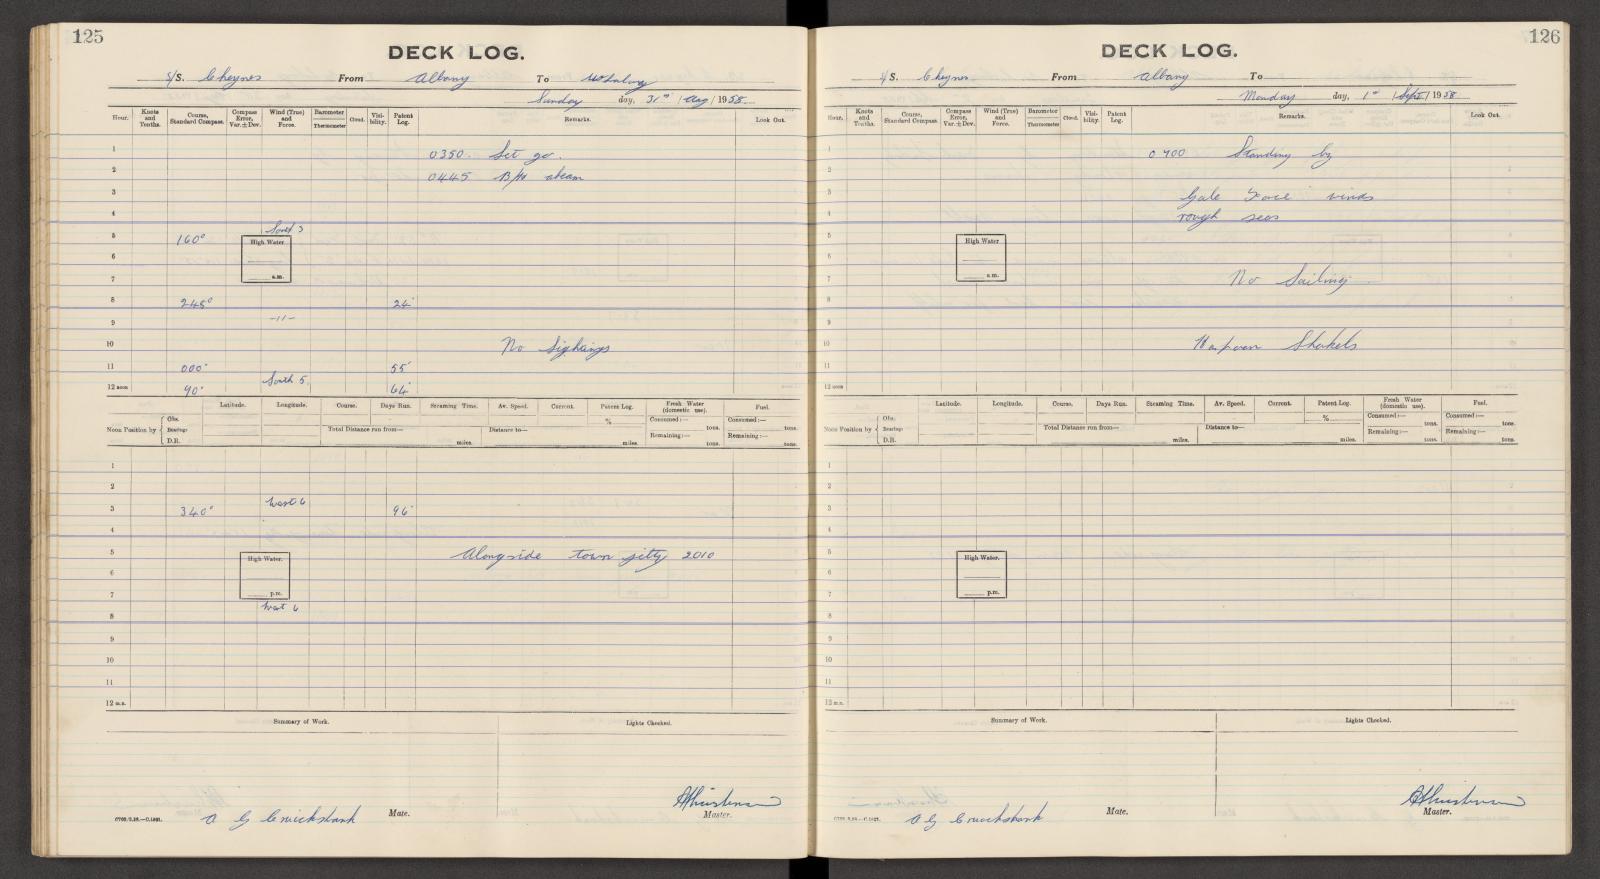 125
DECK LOG.
S/S. Cheynes From Albany To Whaling
Sunday day, 31st / Aug / 1958
Hour. Knots and Tenths. Course, Standard Compass. Compass Error, Var. ± Dev. Wind (True) and Force. Barometer Thermometer Cloud. Visibility. Patent Log. Remarks. Look Out.
1 0350. Set go.
2 0445 B/W abeam
3
4 South 3
5 160°
High Water
a.m.
6
7
8 245° 24'
9 -11-
10 No Sightings
11 000° 55'
12 noon 90° South 5. 64'
Noon Position by Obs. Bearings D.R. Latitude. Longitude. Course. Days Run. Steaming Time. Av. Speed. Current. Patent Log. % Fresh Water (domestic use). Fuel.
Consumed:— tons. Consumed:— tons.
Total Distance run from— miles. Distance to— miles. Remaining:— tons. Remaining:— tons.
1
2
3 340° West 6 96'
4
5 Alongside town jetty 2010
High Water.
p.m.
6
7
8 West 6
9
10
11
12 m.n.
Summary of Work. Lights Checked.
A G Cruickshank Mate.
Master.
126
DECK LOG.
S/S. Cheynes From Albany To
Monday day, 1st / Sept / 1958
Hour. Knots and Tenths. Course, Standard Compass. Compass Error, Var. ± Dev. Wind (True) and Force. Barometer Thermometer Cloud. Visibility. Patent Log. Remarks. Look Out.
1 0700 Standing by
2
3 Gale Force winds
4 rough seas
5
High Water
a.m.
6
7 No Sailing
8
9
10 Harpoon Shakels
11
12 noon
Noon Position by Obs. Bearings D.R. Latitude. Longitude. Course. Days Run. Steaming Time. Av. Speed. Current. Patent Log. % Fresh Water (domestic use). Fuel.
Consumed:— tons. Consumed:— tons.
Total Distance run from— miles. Distance to— miles. Remaining:— tons. Remaining:— tons.
1
2
3
4
5
High Water.
p.m.
6
7
8
9
10
11
12 m.n.
Summary of Work. Lights Checked.
A G Cruickshank Mate.
Master.